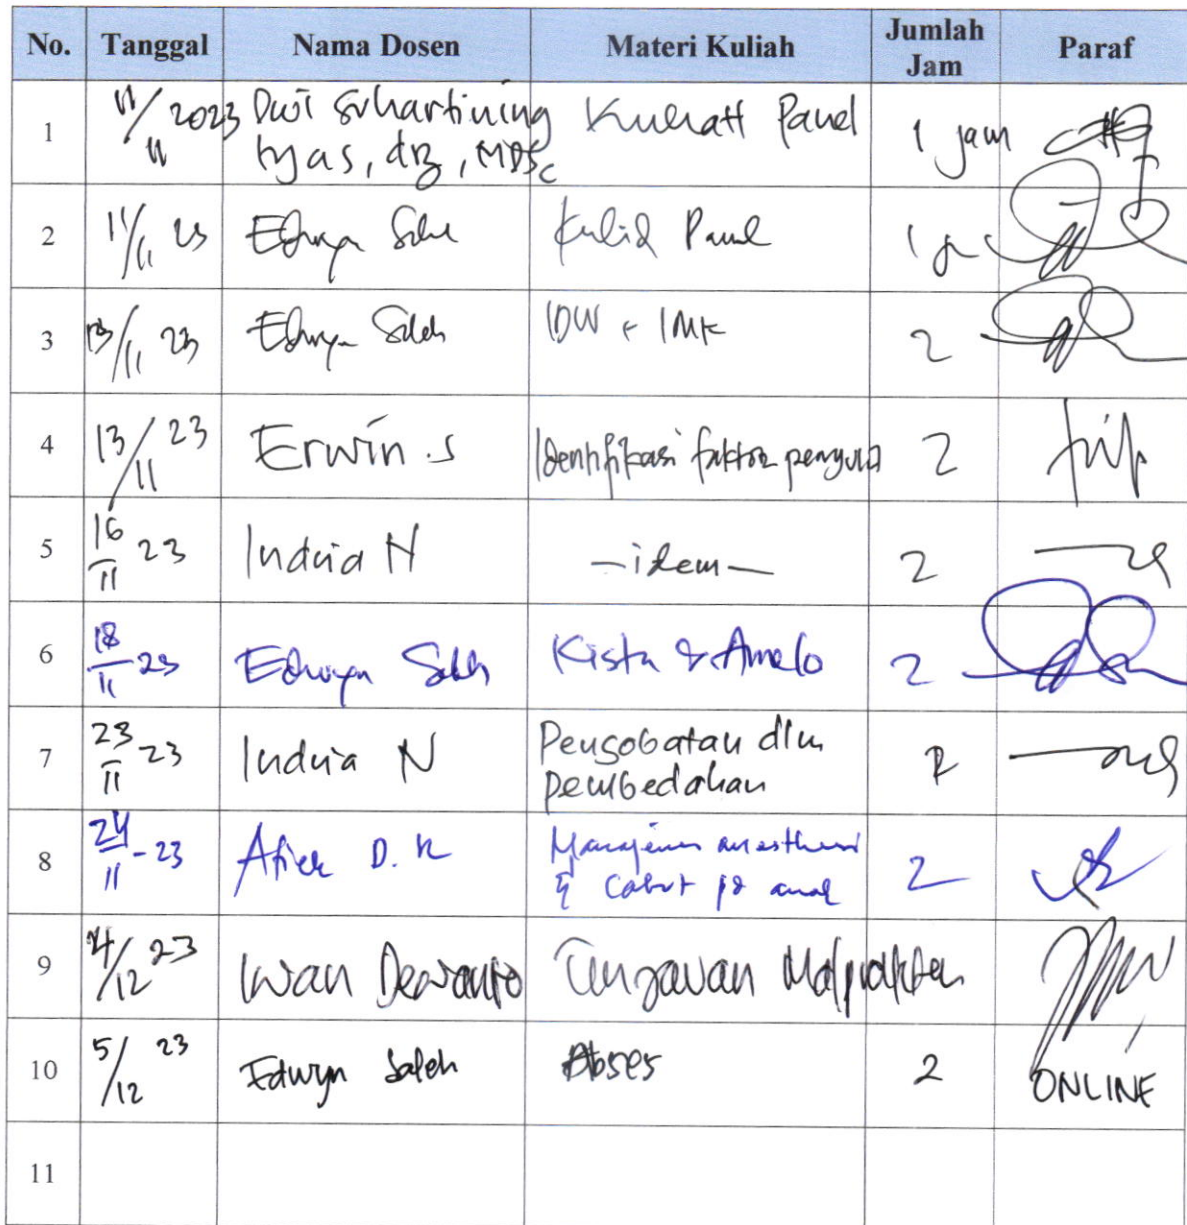 No. Tanggal Nama Dosen Materi Kuliah Jumlah Jam Paraf
1 11/11 2023 Dwi Suhartining tyas, drg, MDSc Kuliah Panel 1 jam
2 11/11 23 Edwyn Saleh Kuliah Panel 1 jam
3 13/11 23 Edwyn Saleh IDW + IMK 2
4 13/11 23 Erwin.S Identifikasi faktor penyulit 2
5 16/11 23 Indria N - idem - 2
6 18/11 23 Edwyn Saleh Kista & Amelo 2
7 23/11 - 23 Indria N Pengobatan dlm pembedahan 2
8 24/11 - 23 Afiek D. K Manajemen anesthesi & Cabut pd anak 2
9 4/12 23 Iwan Dewanto Malpraktek
10 5/12 23 Edwyn Saleh Abses 2 ONLINE
11